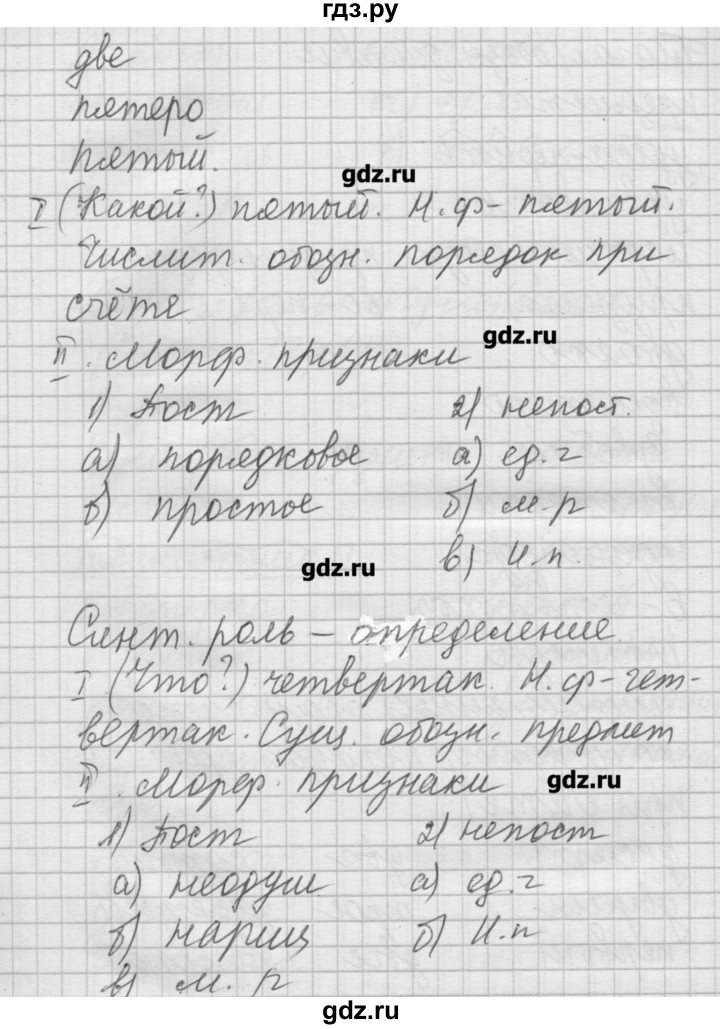 гдз.ру
две
пятеро
пятый.
gdz.ru
I (Какой?) пятый. Н.ф- пятый.
Числит. обозн. порядок при
счёте
gdz.ru
II. Морф. признаки
1) Пост 2) непост.
а) порядковое а) ед.ч
б) простое б) м.р
gdz.ru в) И.п.
Синт. роль – определение
I (Что?) четвертак. Н.ф-чет-
вертак. Сущ. обозн. предмет
II. Морф. признаки gdz.ru
1) Пост 2) непост
а) неодуш а) ед.ч
б) нариц б) И.п
в) м.р
gdz.ru